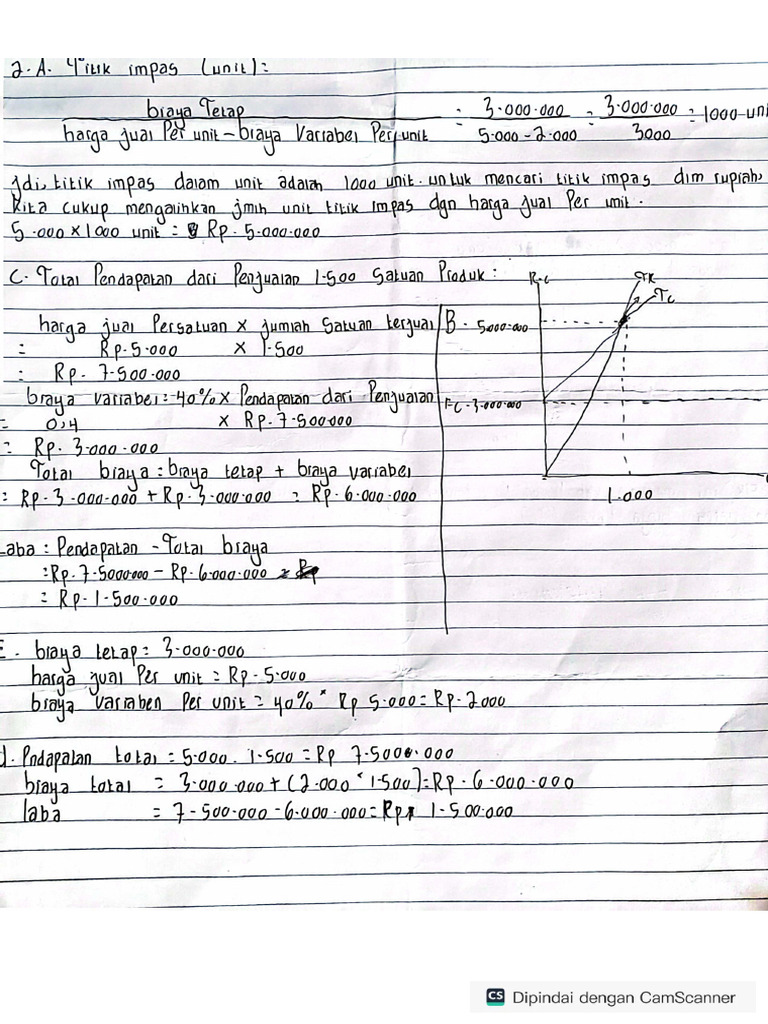 2. A. Titik impas (unit):
biaya Tetap / harga jual Per unit - biaya Variabel Per unit = 3.000.000 / 5.000 - 2.000 = 3.000.000 / 3000 = 1000 uni
Jdi, titik impas dalam unit adalah 1000 unit. untuk mencari titik impas dlm rupiah,
kita cukup mengalinkan jmlh unit titik impas dgn harga jual Per unit.
5.000 x 1000 unit = Rp. 5.000.000
C. Total Pendapatan dari Penjualan 1.500 Satuan Produk:
harga jual Persatuan x jumlah satuan terjual
= Rp.5.000 x 1.500
= Rp. 7.500.000
biaya variabel = 40% x Pendapatan dari Penjualan
= 0,4 x Rp. 7.500.000
= Rp. 3.000.000
Total biaya = biaya tetap + biaya variabel
= Rp. 3.000.000 + Rp. 3.000.000 = Rp. 6.000.000
Laba = Pendapatan - Total biaya
= Rp. 7.5000.000 - Rp. 6.000.000
= Rp. 1.500.000
B.
R.C
TR
TC
5.000.000
FC. 3.000.000
1.000
E. biaya tetap = 3.000.000
harga jual Per unit = Rp. 5.000
biaya variaben Per unit = 40% * Rp 5.000 = Rp. 2000
d. Pndapatan total = 5.000 . 1.500 = Rp 7.500.000
biaya total = 3.000.000 + (2.000 * 1.500) = Rp. 6.000.000
laba = 7.500.000 - 6.000.000 = Rp. 1.500.000
CS Dipindai dengan CamScanner